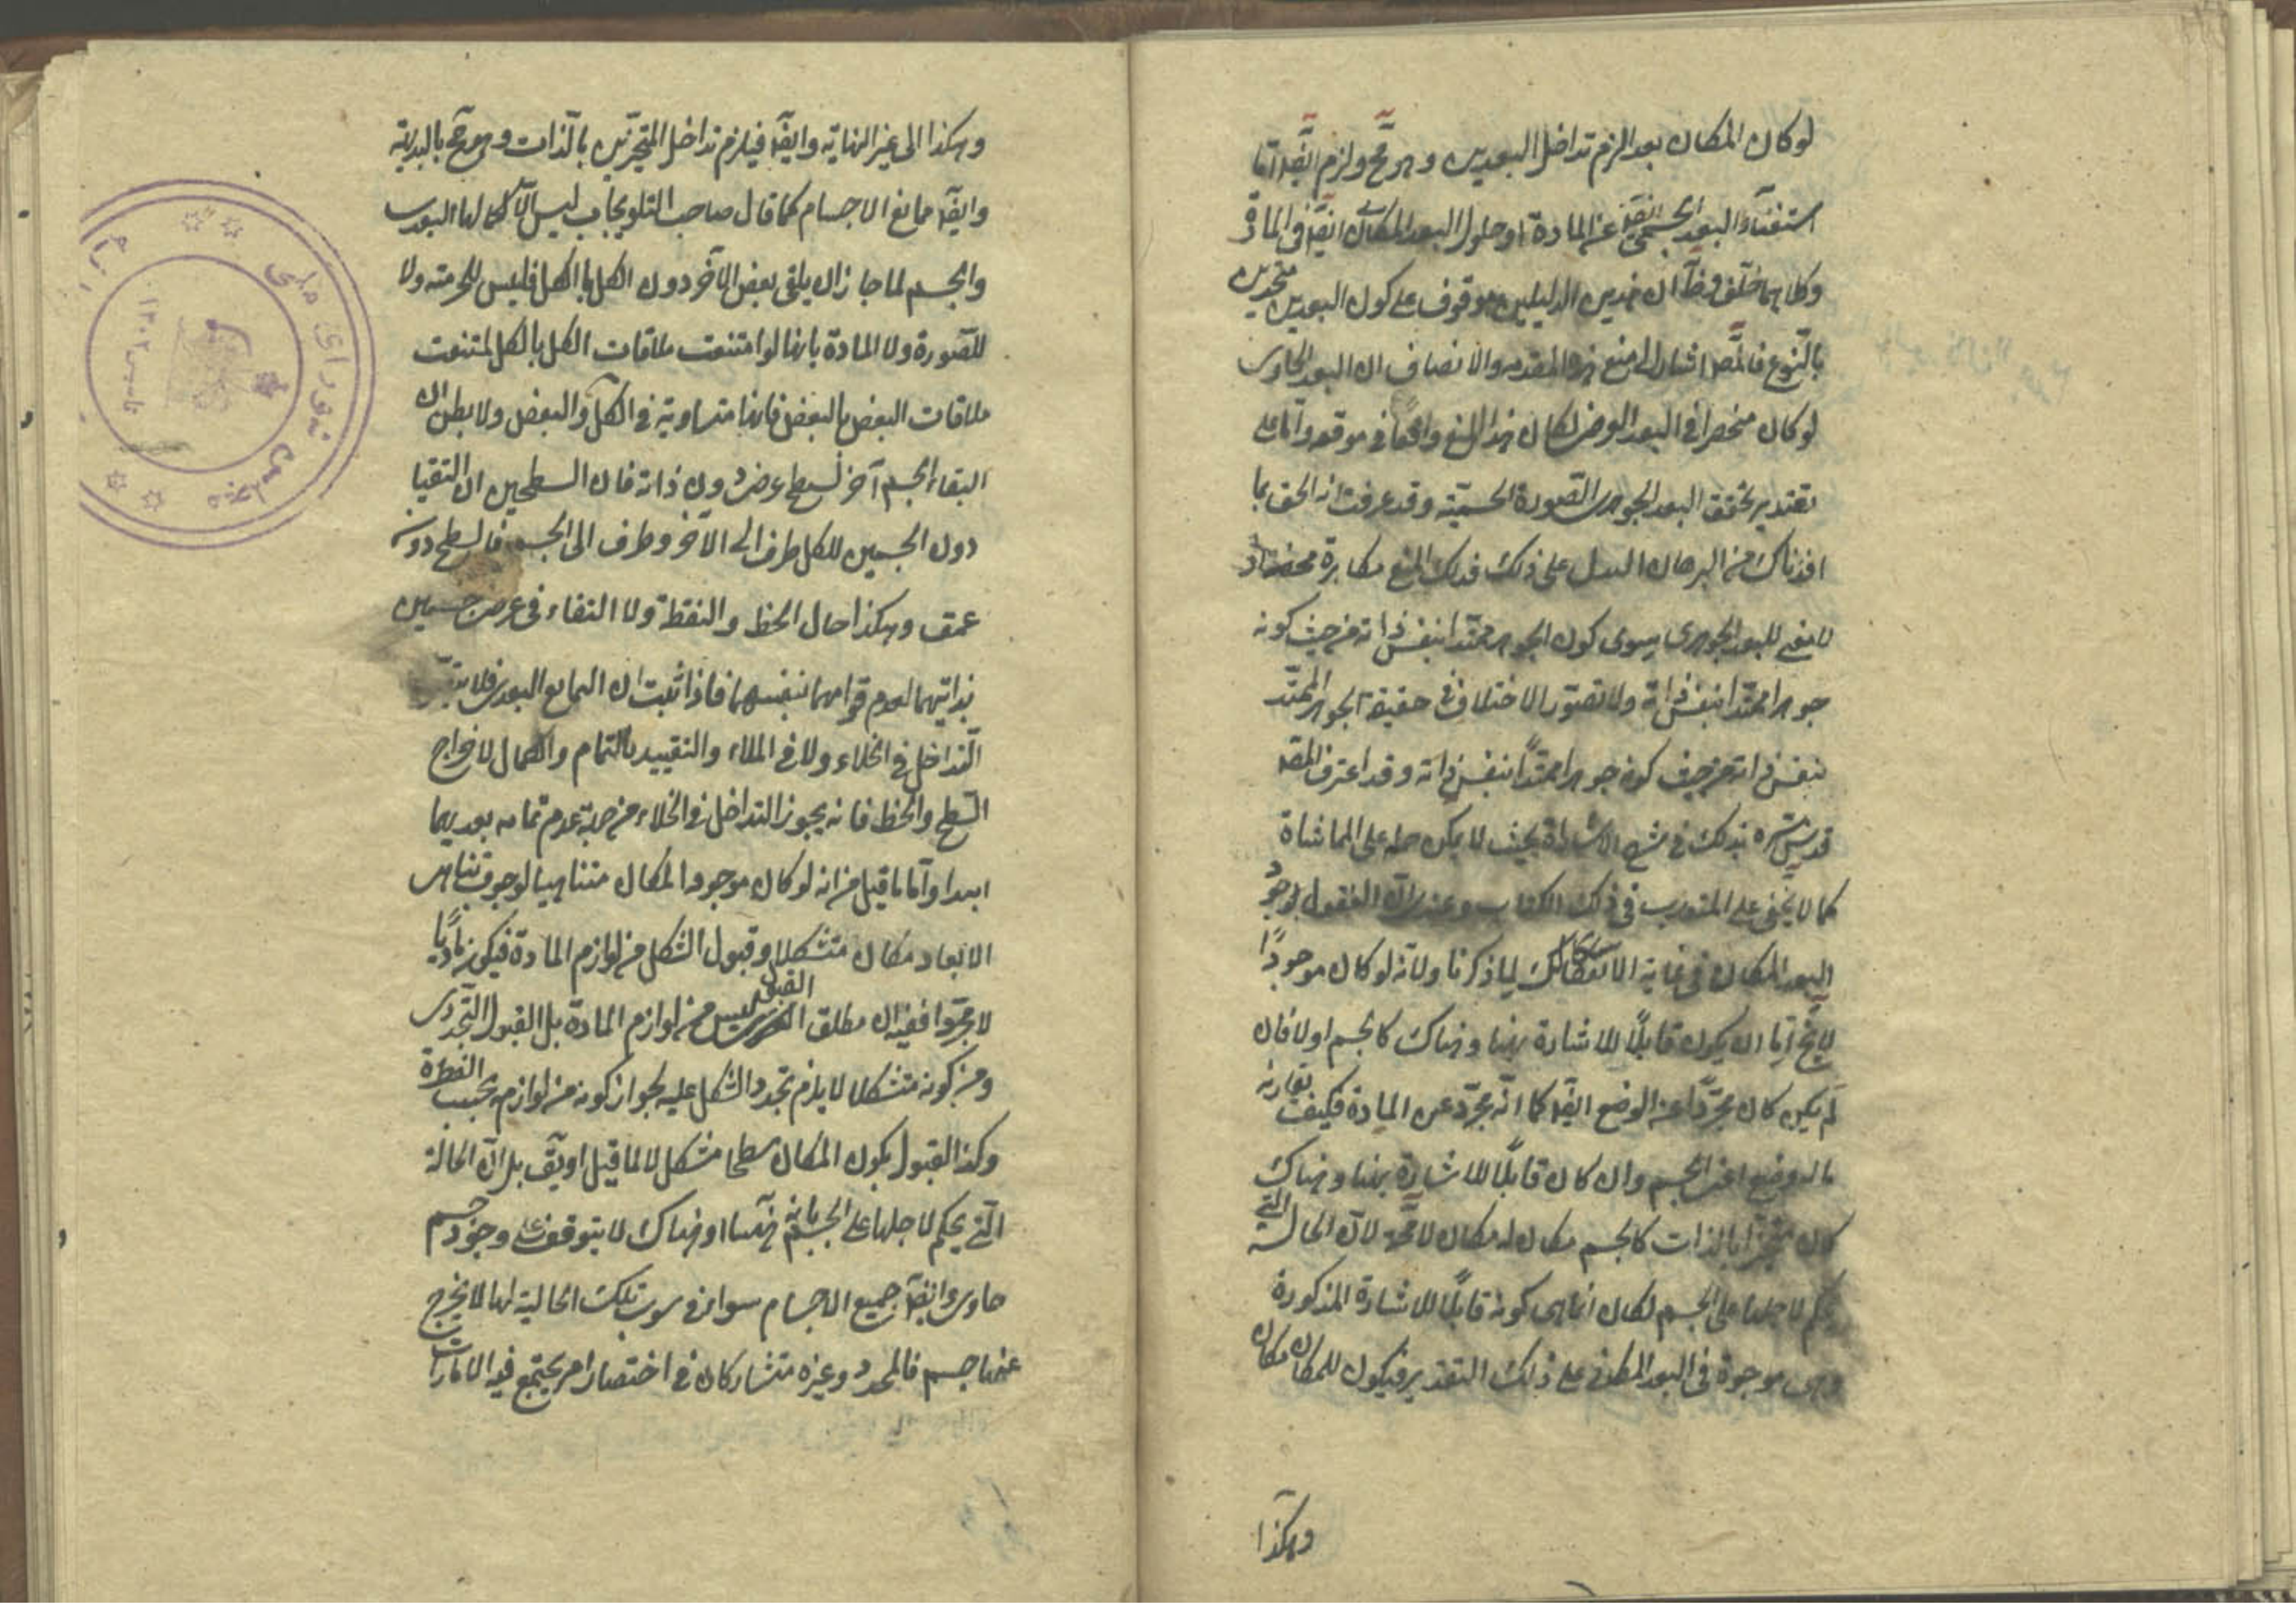 لو كان المكان بعدا لزم تداخل البعدين وهو مح ولزم ايضا اما
استغناء البعد الجسمي ايضا عن المادة او حلول البعد المكاني ايضا في المادة
وكلاهما خلف وظ ان هذين الدليلين موقوف على كون البعدين متحدين
بالنوع فالمص اشار الى منع هذه المقدمه والانصاف ان البعد الحاوى
لو كان منحصرا في البعد العرضى لكان هذا المنع واقعا في موقعه واما على
تقدير تحقق البعد الجوهرى الصورة الجسمية وقد عرفت انه الحق بما
افدناك من البرهان الدال على ذلك فذلك المنع مكابرة محضة اذ
لا معنى للبعد الجوهرى سوى كون الجوهر ممتدا بنفس ذاته من حيث كونه
جوهرا ممتدا بنفس ذاته ولا تصور الاختلاف في حقيقة الجوهر الممتد
بنفس ذاته من حيث كونه جوهرا ممتدا بنفس ذاته وقد اعترف المص
قدس سره بذلك في شرح الاشارات بحيث لا يمكن حمله على المماشاة
كما لا يخفى على المتدرب في ذلك الكتاب وعند ذلك القول بوجود
البعد المكان في غاية الاشكال لما ذكرنا ولانه لو كان موجودا
لا يخ اما ان يكون قابلا للاشارة بهنا وهناك كالجسم او لا فان
لم يكن كان مجردا عن الوضع ايضا كما انه مجرد عن المادة فكيف يقارنه
ماله وضع اعنى الجسم وان كان قابلا للاشارة بهنا وهناك
كان متحيزا بالذات كالجسم فكان له مكان لا محه لان الحالة التي
يحكم لاجلها على الجسم لكان انما هى كونه قابلا للاشارة المذكورة
وهى موجودة في البعد المكاني على ذلك التقدير فيكون للمكان مكان
وهكذا
وهكذا الى غير النهاية وايضا فيلزم تداخل المتحيزين بالذات وهو مح بالبديهة
وايضا ممانع الاجسام كما قال صاحب التلويحات ليس الا كمالها البعدى
والجسم لما جاز ان يلقى بعض الآخر دون الكل بالكل فليس للجرمية ولا
للصورة ولا المادة بانها لو امتنعت ملاقات الكل بالكل لمتنعت
ملاقات البعض بالبعض فانها متساوية في الكل والبعض ولا يظن ان
التقاء الجسم آخر لسطح عرض دون ذاته فان السطحين ان التقيا
دون الجسمين للكل طرف الى الآخر وطرف الى الجسم فالسطح دون
عمق وهكذا حال الخط والنقطة ولا التقاء في عرض جسمين
بذاتيهما لعدم قوامهما بنفسهما فاذا ثبت ان الممانع البعدى فلا
التداخل في الخلاء ولا في الملاء والتقييد بالتمام والكمال لاخراج
السطح والخط فانه يجوز التداخل في الخلاء من جهة عدم تمامه بعديهما
ابدا واما ما قيل من انه لو كان موجود المكان متناهيا لوجوب تناهى
الابعاد فكان متشكلا وقبول الشكل من لوازم المادة فيكون ماديا
لا مجردا ففيه ان مطلق القبول ليس من لوازم المادة بل القبول التجددى
ومن كونه متشكلا لا يلزم تجدد الشكل عليه لجواز كونه من لوازمه بحسب الفطرة
وكذا القبول بكون المكان سطحا مشكل لا لما قيل او يق بل لان الحالة
التي يحكم لاجلها على الجسم بانه ههنا او هناك لا يتوقف على وجود جسم
حاوى وايضا جميع الاجسام سواء في ثبوت تلك الحالية لها لا يخرج
عنها جسم فالمحدد وغيره متشاركان في اختصار امر يجتمع فيه الامارات
مجلس شوراى ملى